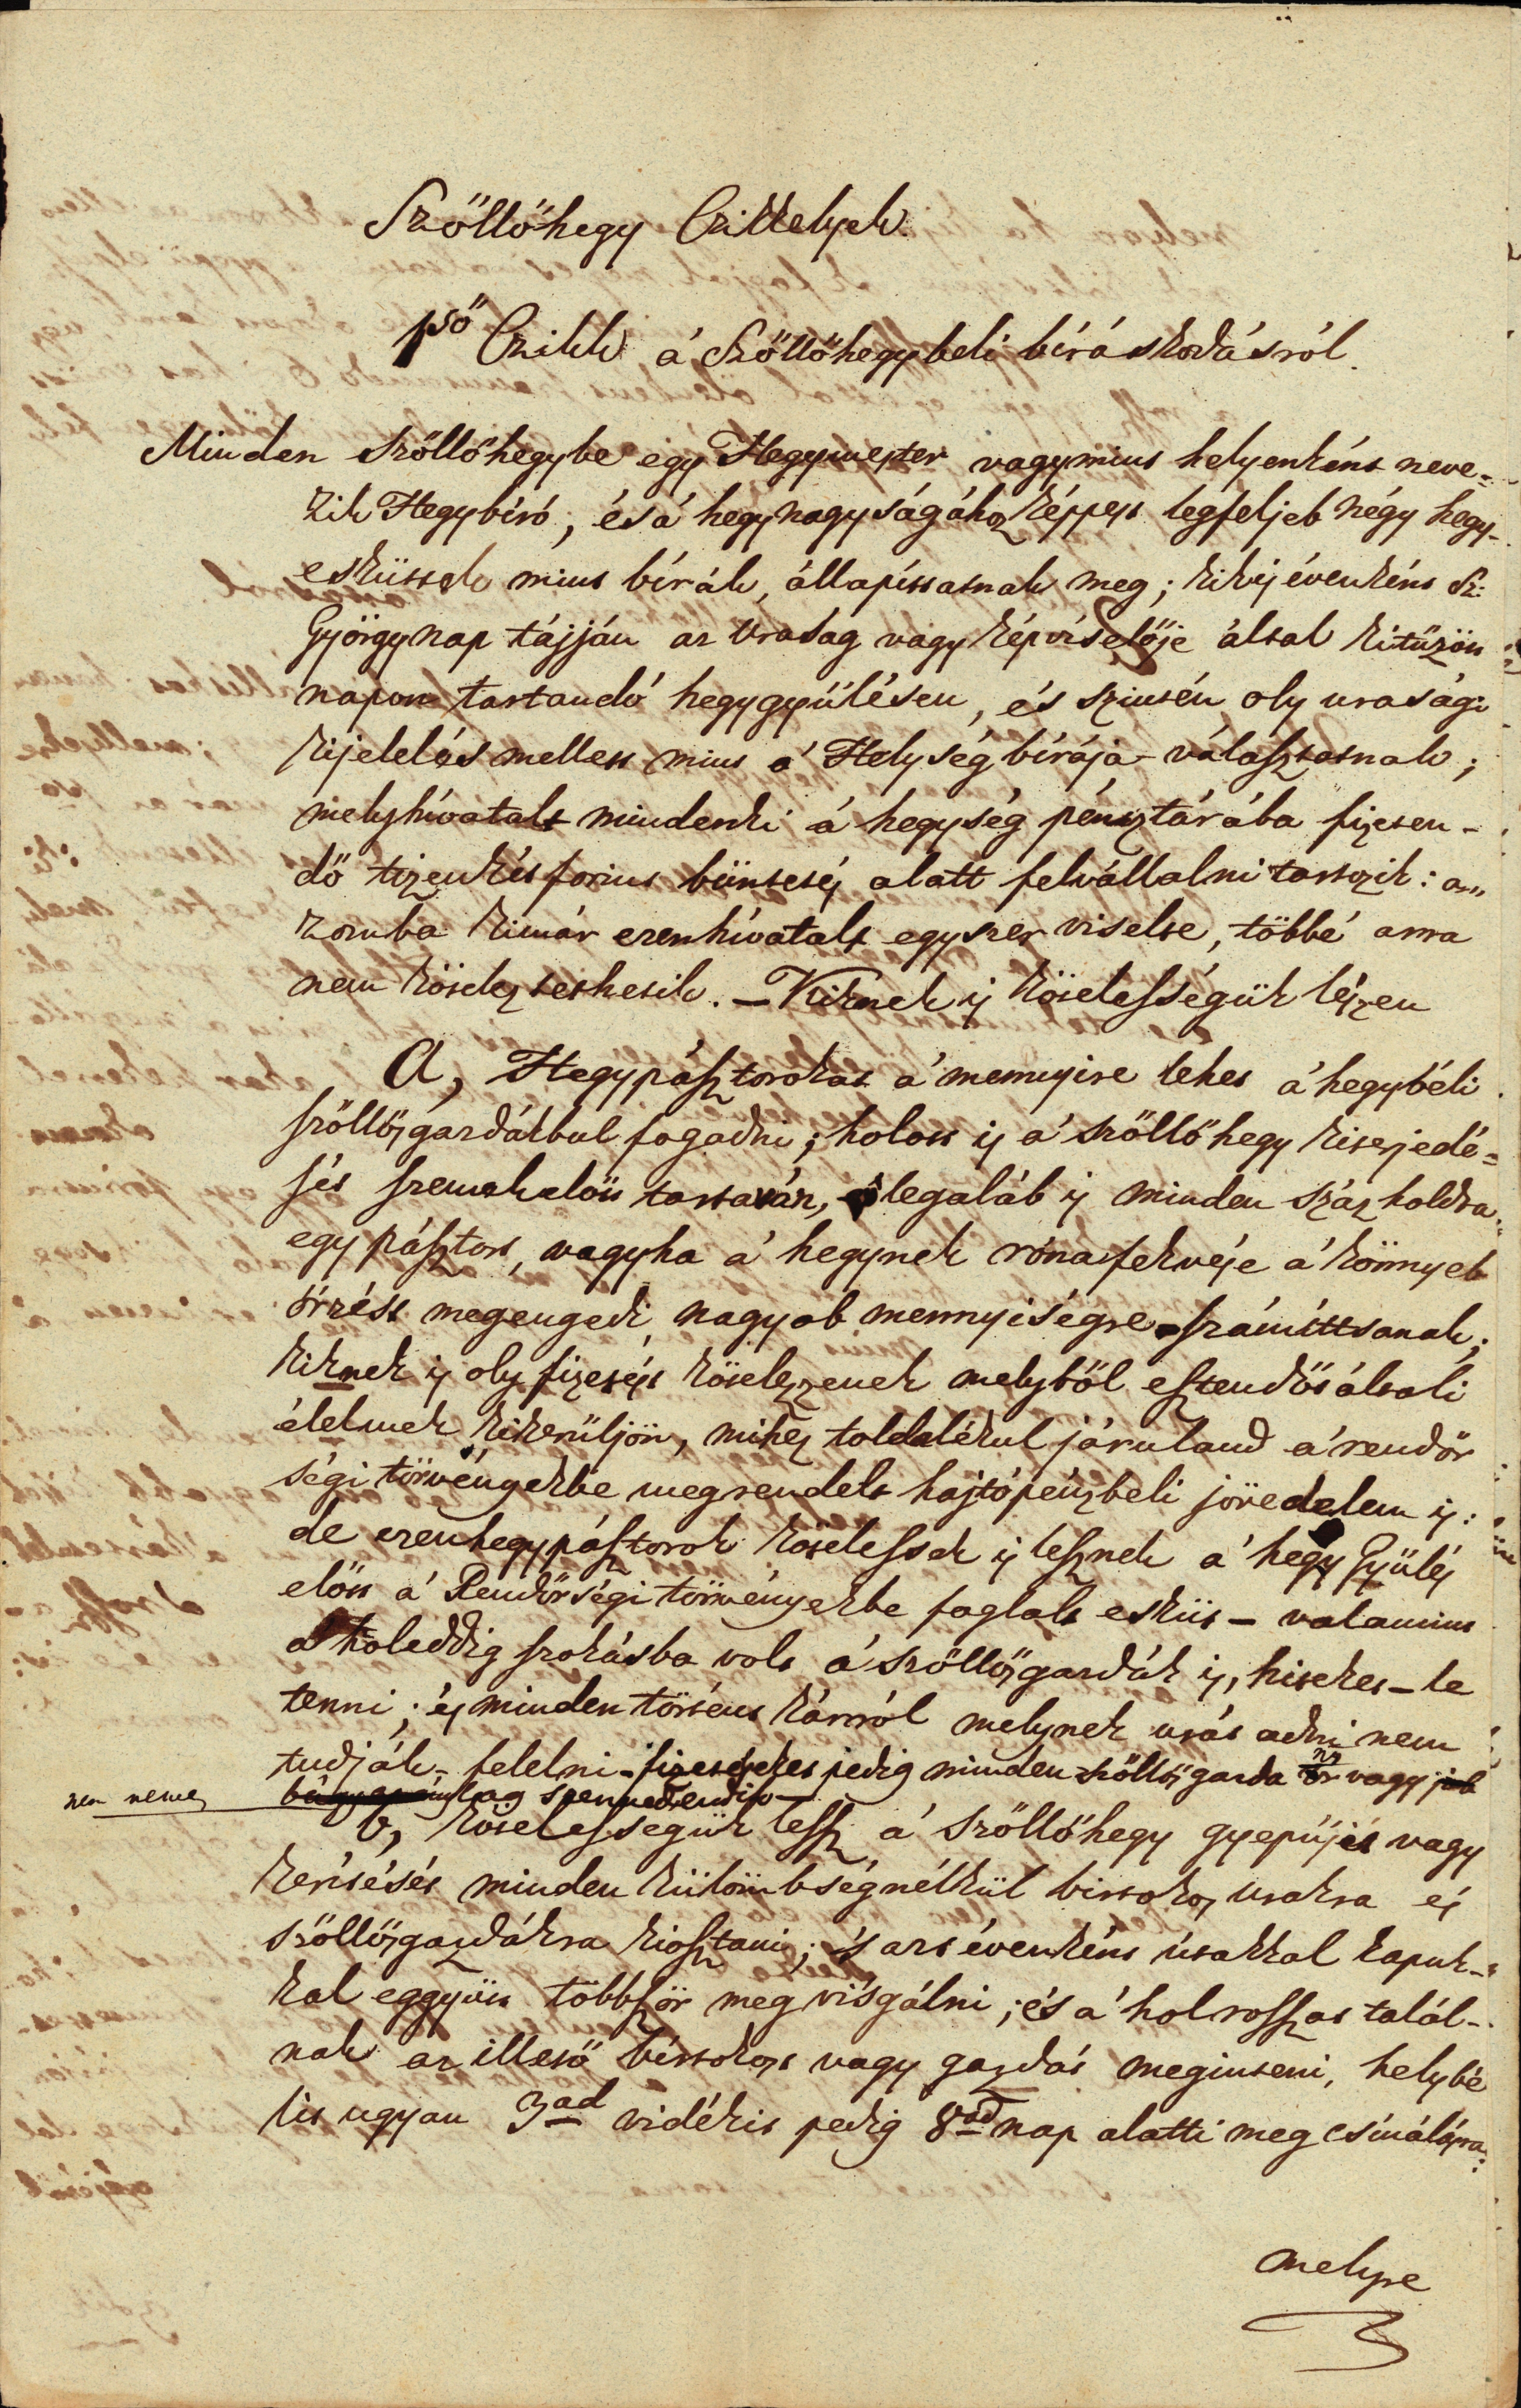 Szőllőhegy Czikkelyek.
1ső Czikk á Szőllőhegybeli bíráskodásról.
Minden Szőllőhegybe egy Hegymester vagy mint helyenként neve-
zik Hegybíró, és á hegy nagyságához képpest legfeljeb négy hegy-
esküttek mint bírák, állapíttatnak meg; kik is évenként Sz:
György nap tájján az Uraság vagy képviselője által kitűzött
napon tartandó hegygyűlésen, és szintén oly urasági
kijelelés mellett mint a' Helység bírája – választatnak;
mely hívatalt mindenki á hegység pénsztárába fizeten-
dő tizenkét forint büntetés alatt felvállalni tartozik: a„
zomba ki már ezen hívatalt egyszer viselte, többé arra
nem köteleztethetik. – Kiknek is kötelességük lészen
A, Hegypásztorokat a' mennyire lehet á hegybéli
szőllősgazdákbul fogadni; holott is a' szőllőhegy kiterjedé=
sét szemek előtt tartaván, legaláb is minden száz holdra
egy pásztort, vagy ha a' hegynek róna fekvése a' könnyeb
őrzést megengedi, nagyob mennyiségre számíttsanak;
kiknek is oly fizetést kötelezzenek melyből esztendős általi
élelmek kikerüljön, mihez toldalékul járuland a' rendőr
ségi törvényekbe megrendelt hajtópénzbeli jövedelem is:
de ezen hegypásztorok kötelessek is lesznek a' hegy Gyűlés
előtt a' Rendőrségi törvényekbe foglalt esküt – valamint
ekkoleddig szokásba volt á szőllősgazdák is, hiteket – le
tenni; és minden történt kárról melynek utát adni nem
tudják – felelni – fizetéseket pedig minden szőllős gazda úr vagy job
nem nemes
b, kötelességük lessz á Szőllőhegy gyepűjét vagy
kerítését minden külömbség nélkül birtokos urakra és
szőllősgazdákra kiosztani; 's azt évenként útakkal kapuk-
kal eggyütt többször meg vi'sgálni; és a' hol rosszat talál-
nak az illető birtokost vagy gazdát meginteni, helybé
lit ugyan 3ad vidékit pedig 8ad nap alatti meg csinálásra:
melyre